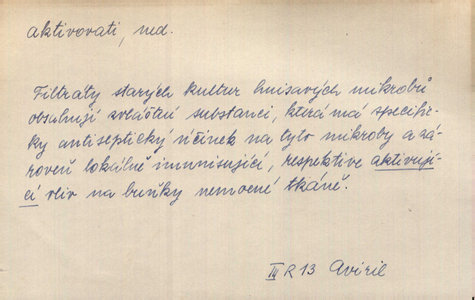 aktivovati, ned.
Filtráty starých kultur hnisavých mikrobů
obsahují zvláštní substanci, která má specific-
ky antiseptický účinek na tyto mikroby a zá-
roveň lokálně imunisující, respektive aktivují-
cí vliv na buňky nemocné tkáně.
III R 13 Aviril